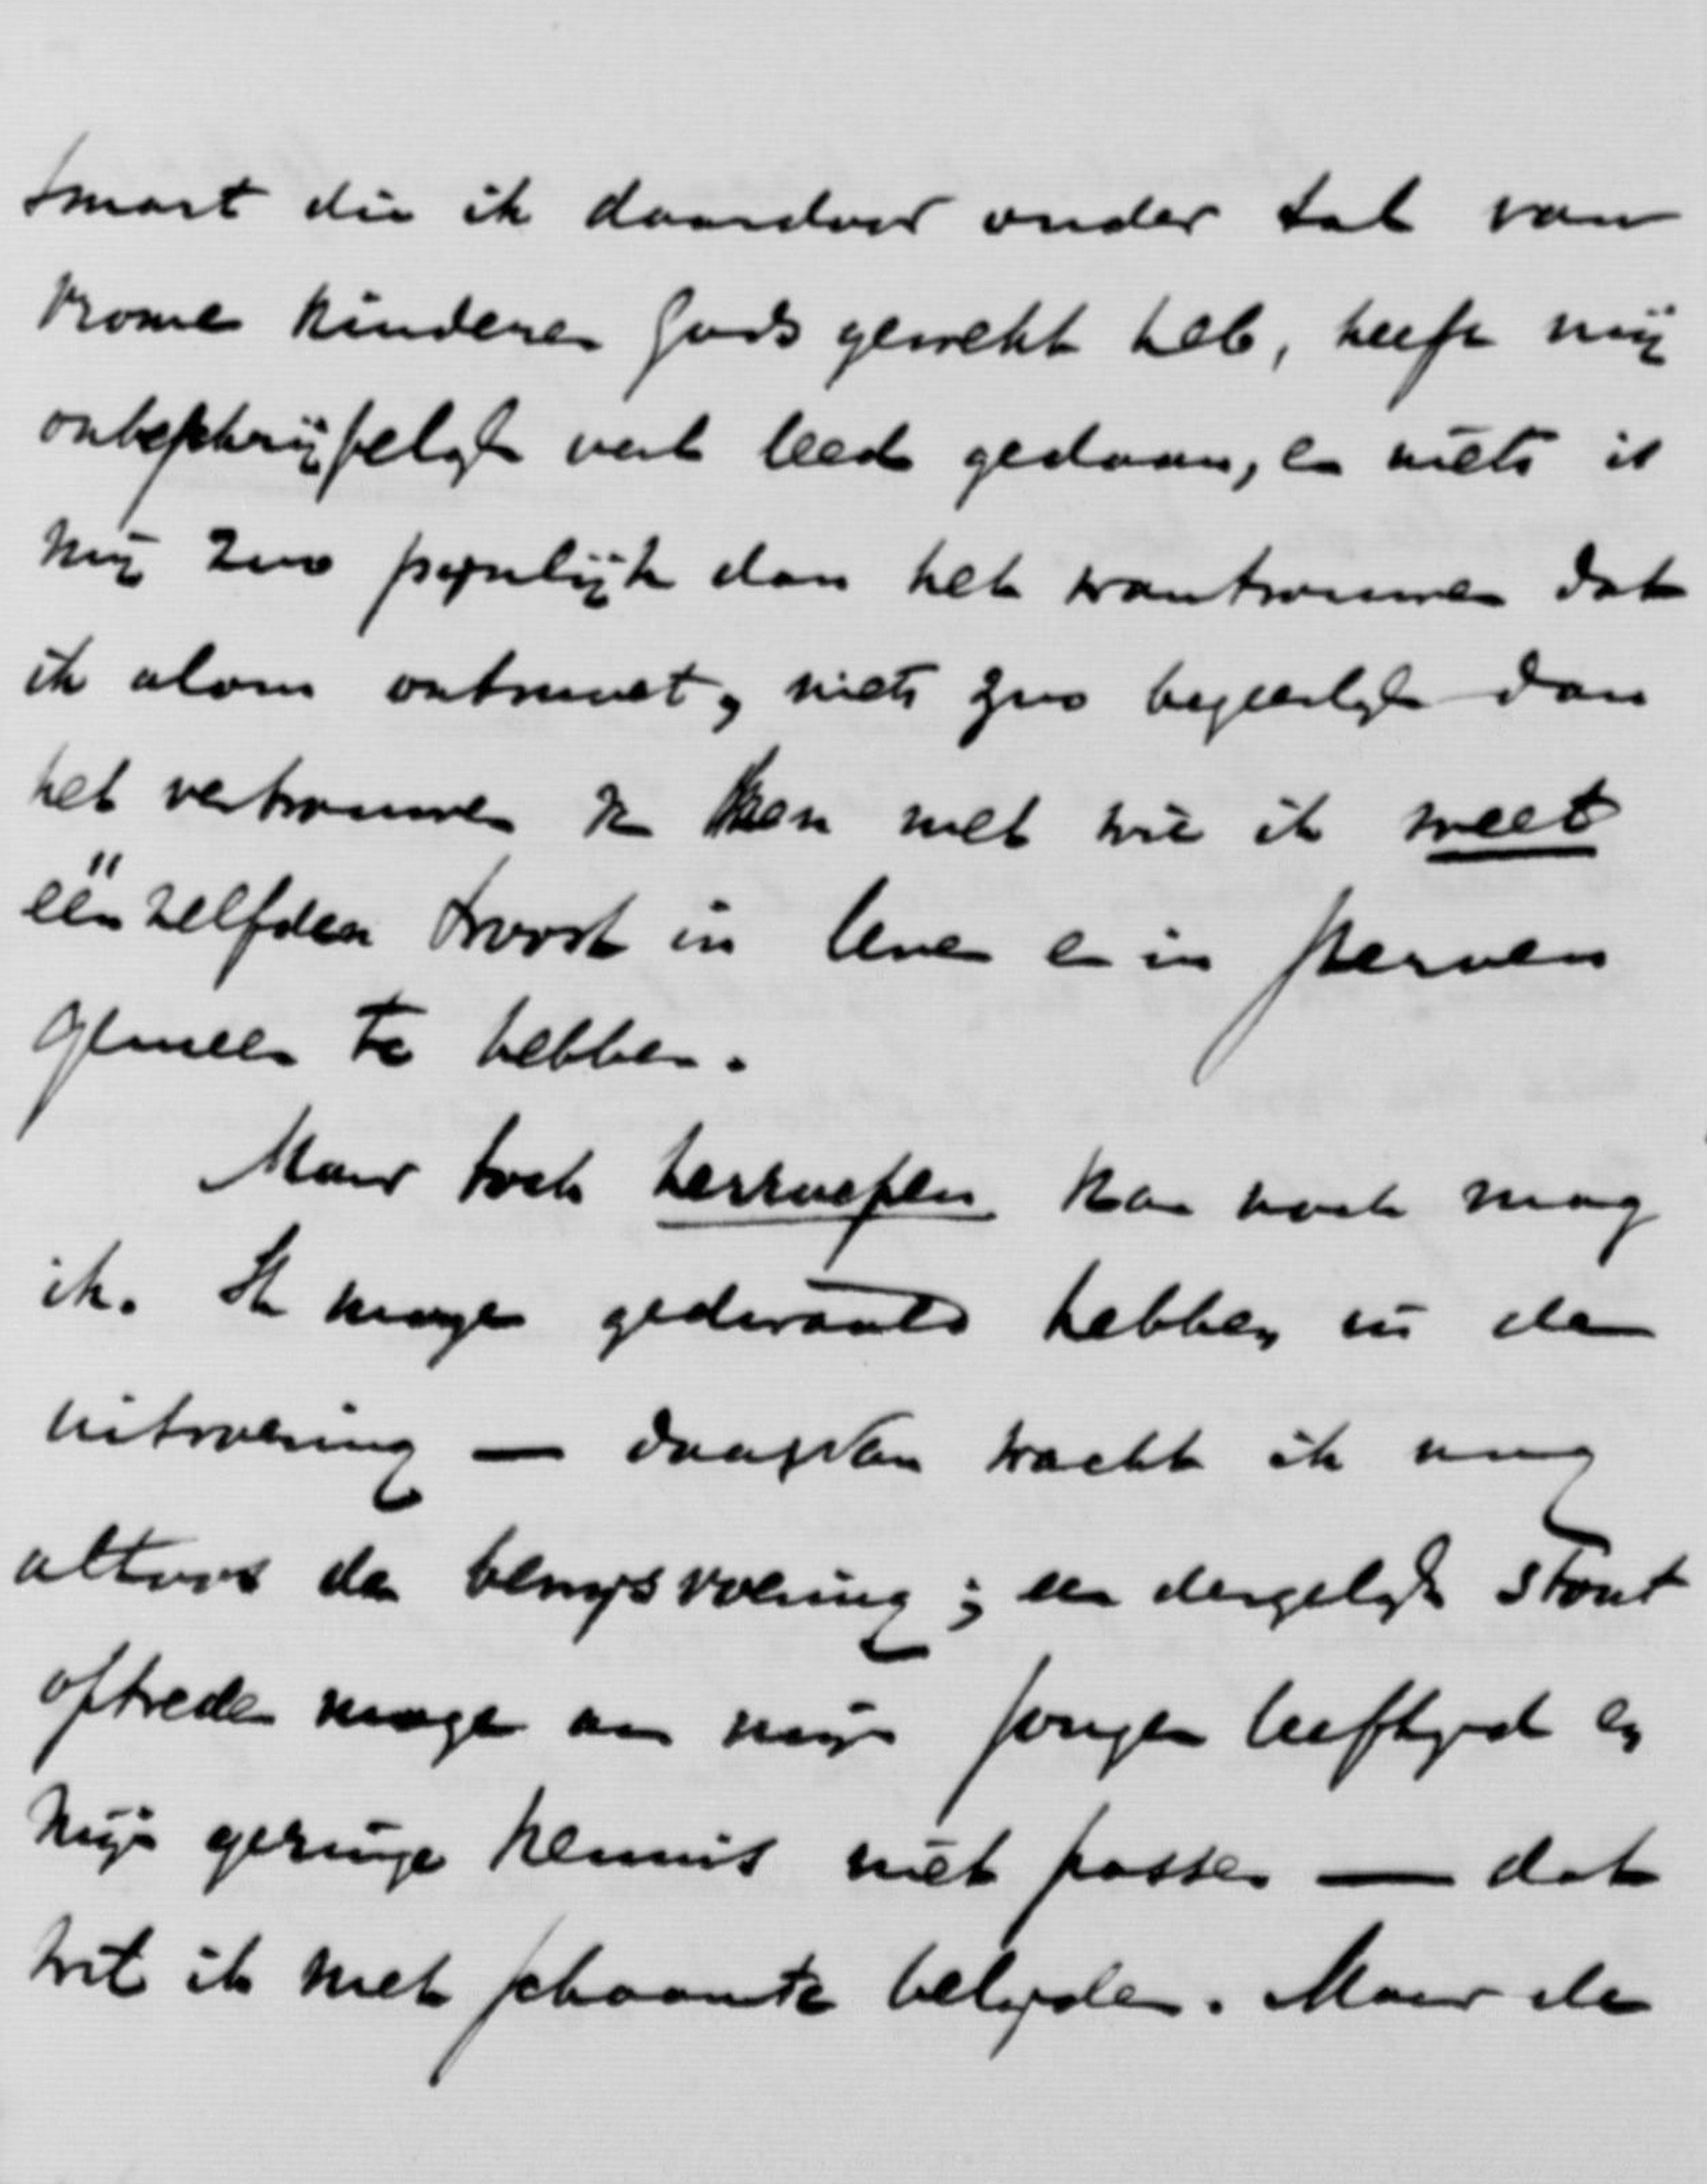 smart die ik daardoor onder tal van
vrome kinderen Gods gewekt heb, heeft mij
onbeschrijfelijk veel leed gedaan, en niets is
mij zoo pijnlijk dan het wantrouwen dat
ik alom ontmoet, niets zoo begeerlijk dan
het vertrouwen van hen met wie ik weet
één zelfden troost in leven en in sterven
gemeen te hebben.
Maar toch herroepen kan noch mag
ik. Ik moge gedwaald hebben in de
uitvoering — daarvan wacht ik nog
altoos de bewijsvoering; een dergelijk stout
optreden moge aan mijn jongen leeftijd en
mijn geringe kennis niet passen — dat
wil ik met schaamte belijden. Maar de